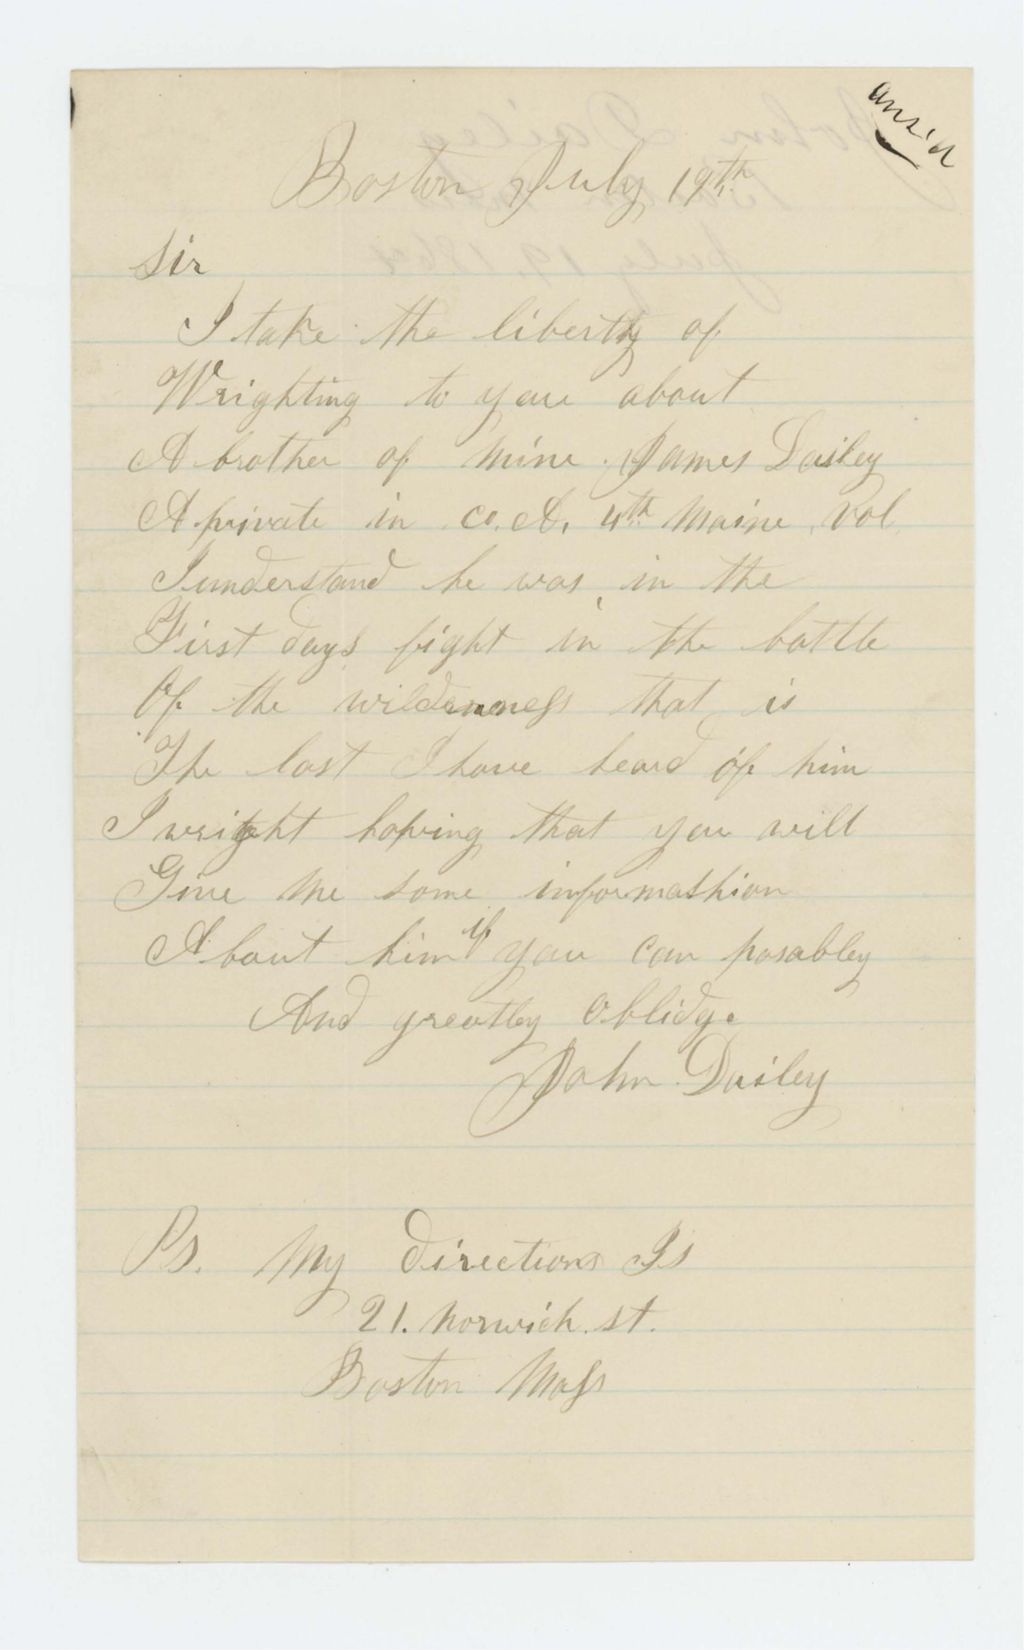 ans'd
Boston July 19th
Sir
I take the liberty of
Wrighting to you about
A brother of mine James Dailey
A private in co. A. 4th Maine Vol
I understand he was in the
First days fight in the battle
Of the wilderness that is
The last I have heard of him
I wright hopving that you will
Give me some informathion
About him if you can posabley
And greatley Oblidge
John Dailey
Ps. My directions Is
21. Norwich. st.
Boston Mass